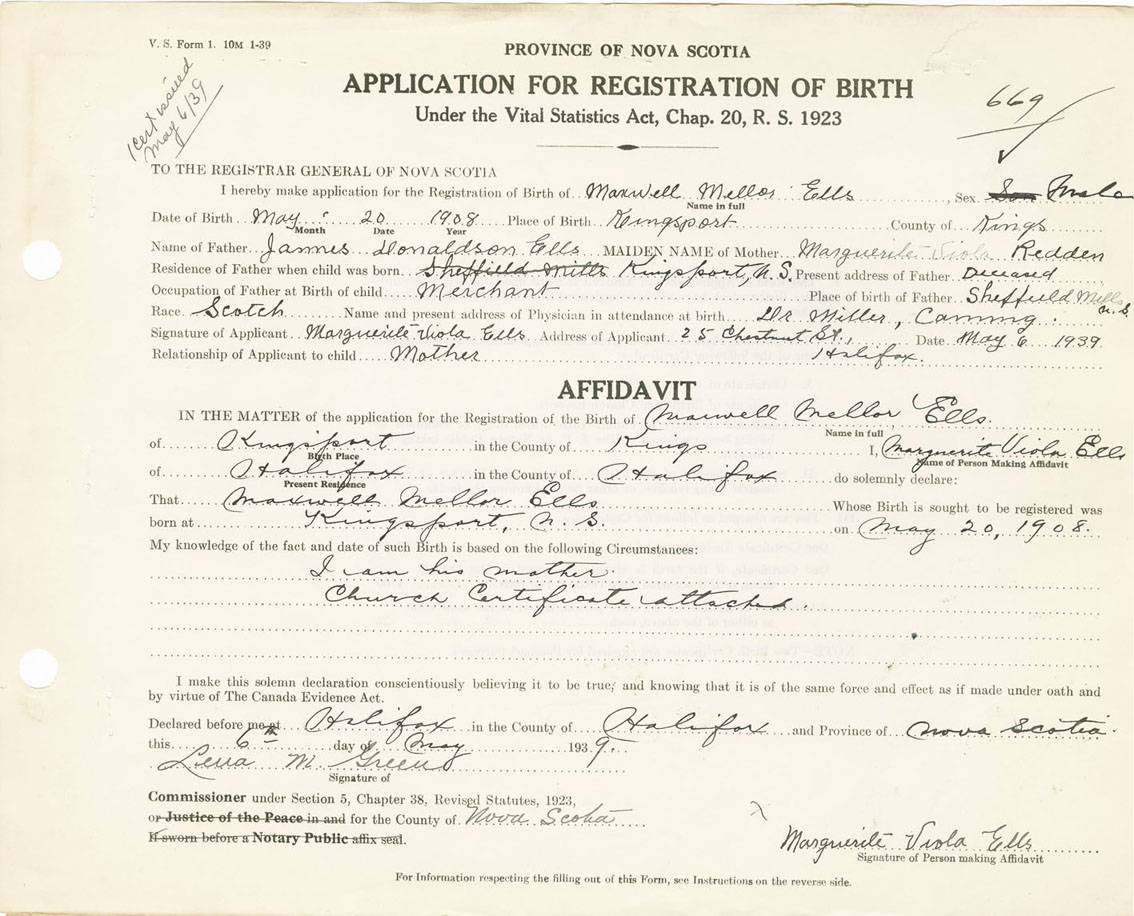 V. S. Form 1. 10M 1-39
1 cert issued
May 6/39
PROVINCE OF NOVA SCOTIA
APPLICATION FOR REGISTRATION OF BIRTH
Under the Vital Statistics Act, Chap. 20, R. S. 1923
669
TO THE REGISTRAR GENERAL OF NOVA SCOTIA
I hereby make application for the Registration of Birth of Maxwell Mellor Ells, Sex Son Male
Name in full
Date of Birth May 20 1908 Place of Birth Kingsport County of Kings
Month Date Year
Name of Father James Donaldson Ells MAIDEN NAME of Mother Marguerite Viola Redden
Residence of Father when child was born Sheffield Mills Kingsport, N. S. Present address of Father Deceased
Occupation of Father at Birth of child Merchant Place of birth of Father Sheffield Mills N. S.
Race Scotch Name and present address of Physician in attendance at birth Dr Miller, Canning.
Signature of Applicant Marguerite Viola Ells Address of Applicant 25 Chestnut St., Date May 6 1939
Relationship of Applicant to child Mother Halifax.
AFFIDAVIT
IN THE MATTER of the application for the Registration of the Birth of Maxwell Mellor Ells
Name in full
of Kingsport in the County of Kings I, Marguerite Viola Ells
Birth Place Name of Person Making Affidavit
of Halifax in the County of Halifax do solemnly declare:
Present Residence
That Maxwell Mellor Ells Whose Birth is sought to be registered was
born at Kingsport, N. S. on May 20, 1908.
My knowledge of the fact and date of such Birth is based on the following Circumstances:
I am his mother.
Church Certificate attached.
I make this solemn declaration conscientiously believing it to be true, and knowing that it is of the same force and effect as if made under oath and
by virtue of The Canada Evidence Act.
Declared before me at Halifax in the County of Halifax and Province of Nova Scotia.
this 6th day of May 1939.
Lena M Green
Signature of
Commissioner under Section 5, Chapter 38, Revised Statutes, 1923,
or Justice of the Peace in and for the County of Nova Scotia
If sworn before a Notary Public affix seal.
Marguerite Viola Ells
Signature of Person making Affidavit
For Information respecting the filling out of this Form, see Instructions on the reverse side.